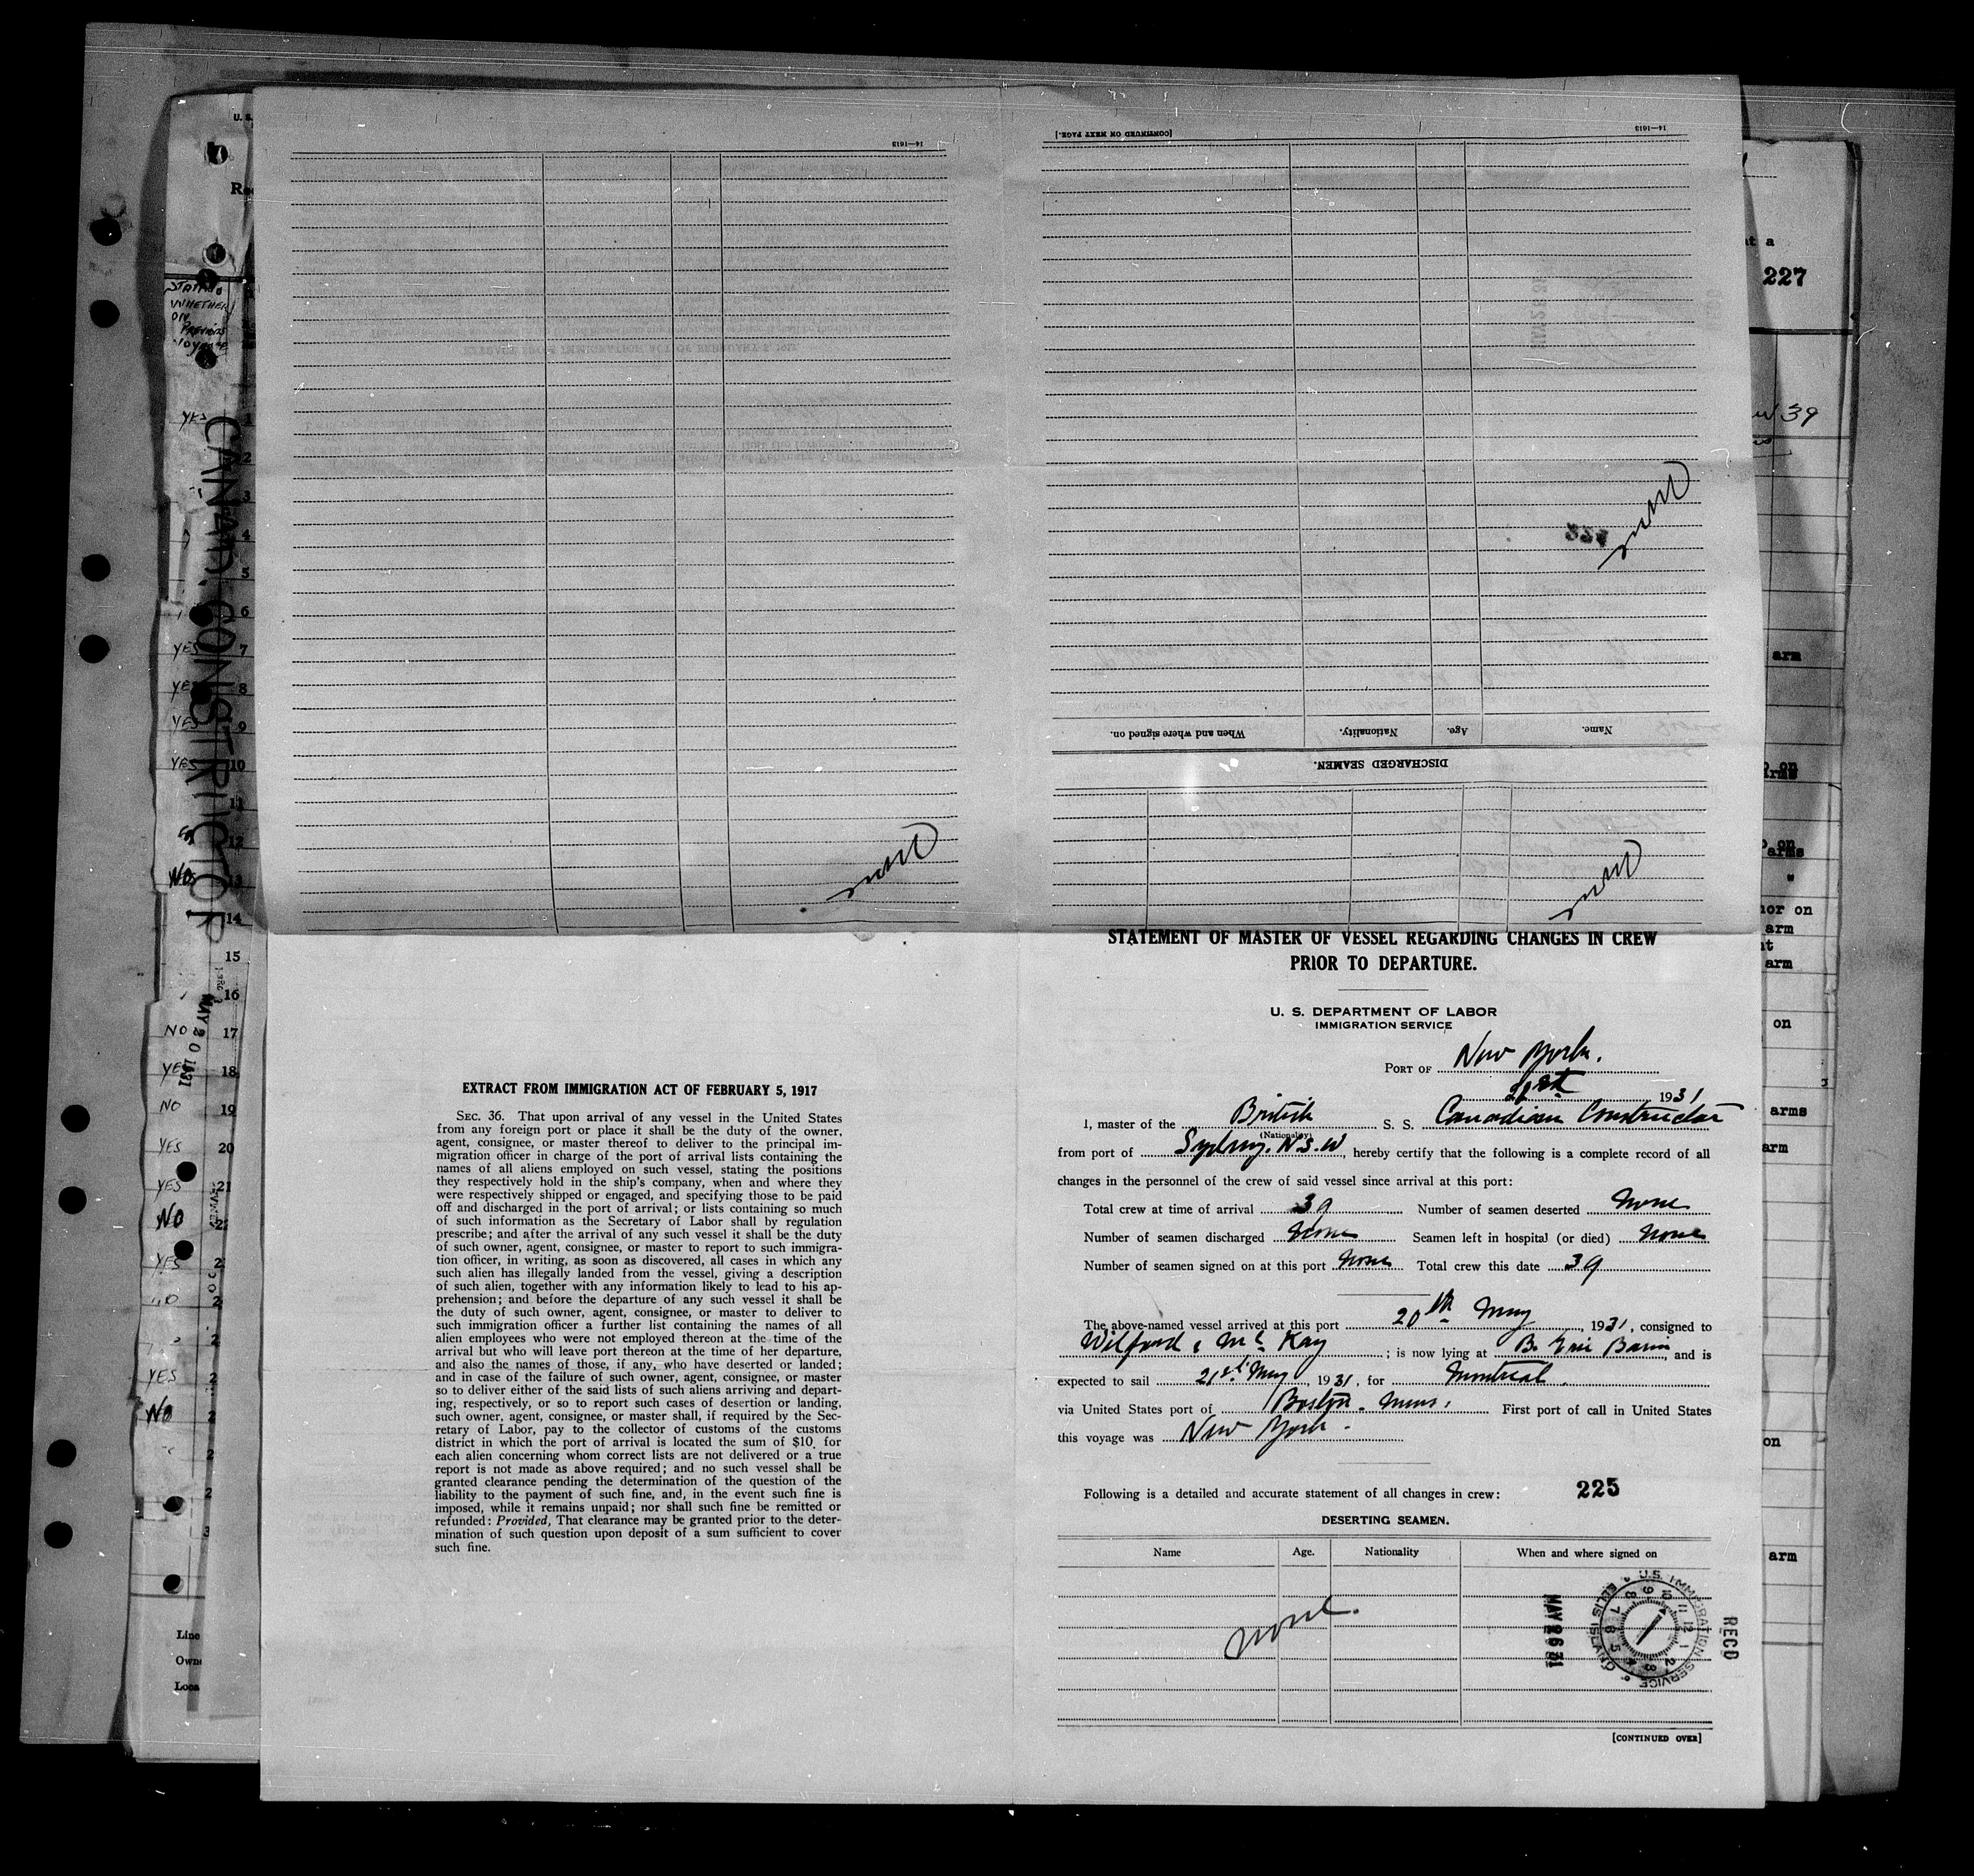 U. S.
14—1613
[CONTINUED ON NEXT PAGE.]
14—1613
227
STATING
WHETHER
ON
PREVIOUS
VOYAGE
39
YES
CANAD. CONSTRUCTOR
1
2
3
4
5
6
YES 7
YES 8
YES 9
YES 10
11
12
NO 13
14
15
16
NO 17
YES 18
NO 19
YES 20
YES 21
NO
YES
YES
NO
MAY 20 1931
Line
None
None
None
When and where signed on.
Nationality.
Age.
Name.
DISCHARGED SEAMEN.
arm
on
arms
hor on
arm
arm
on
arms
arm
on
arm
EXTRACT FROM IMMIGRATION ACT OF FEBRUARY 5, 1917
SEC. 36. That upon arrival of any vessel in the United States
from any foreign port or place it shall be the duty of the owner,
agent, consignee, or master thereof to deliver to the principal im-
migration officer in charge of the port of arrival lists containing the
names of all aliens employed on such vessel, stating the positions
they respectively hold in the ship's company, when and where they
were respectively shipped or engaged, and specifying those to be paid
off and discharged in the port of arrival; or lists containing so much
of such information as the Secretary of Labor shall by regulation
prescribe; and after the arrival of any such vessel it shall be the duty
of such owner, agent, consignee, or master to report to such immigra-
tion officer, in writing, as soon as discovered, all cases in which any
such alien has illegally landed from the vessel, giving a description
of such alien, together with any information likely to lead to his ap-
prehension; and before the departure of any such vessel it shall be
the duty of such owner, agent, consignee, or master to deliver to
such immigration officer a further list containing the names of all
alien employees who were not employed thereon at the time of the
arrival but who will leave port thereon at the time of her departure,
and also the names of those, if any, who have deserted or landed;
and in case of the failure of such owner, agent, consignee, or master
so to deliver either of the said lists of such aliens arriving and depart-
ing, respectively, or so to report such cases of desertion or landing,
such owner, agent, consignee, or master shall, if required by the Sec-
retary of Labor, pay to the collector of customs of the customs
district in which the port of arrival is located the sum of $10 for
each alien concerning whom correct lists are not delivered or a true
report is not made as above required; and no such vessel shall be
granted clearance pending the determination of the question of the
liability to the payment of such fine, and, in the event such fine is
imposed, while it remains unpaid; nor shall such fine be remitted or
refunded: Provided, That clearance may be granted prior to the deter-
mination of such question upon deposit of a sum sufficient to cover
such fine.
STATEMENT OF MASTER OF VESSEL REGARDING CHANGES IN CREW
PRIOR TO DEPARTURE.
U. S. DEPARTMENT OF LABOR
IMMIGRATION SERVICE
PORT OF New York.
21st 1931
I, master of the British S. S. Canadian Constructor
(Nationality)
from port of Sydney. N.S.W, hereby certify that the following is a complete record of all
changes in the personnel of the crew of said vessel since arrival at this port:
Total crew at time of arrival 39 Number of seamen deserted None
Number of seamen discharged None Seamen left in hospital (or died) None
Number of seamen signed on at this port None Total crew this date 39
The above-named vessel arrived at this port 20th May, 1931, consigned to
Wilford & McKay; is now lying at B. Erie Basin, and is
expected to sail 21st May, 1931, for Montreal.
via United States port of Boston. Mass. First port of call in United States
this voyage was New York.
Following is a detailed and accurate statement of all changes in crew: 225
DESERTING SEAMEN.
Name Age. Nationality When and where signed on
None.
MAY 26 31
U.S. IMMIGRATION SERVICE ELLIS ISLAND
RECD
[CONTINUED OVER]